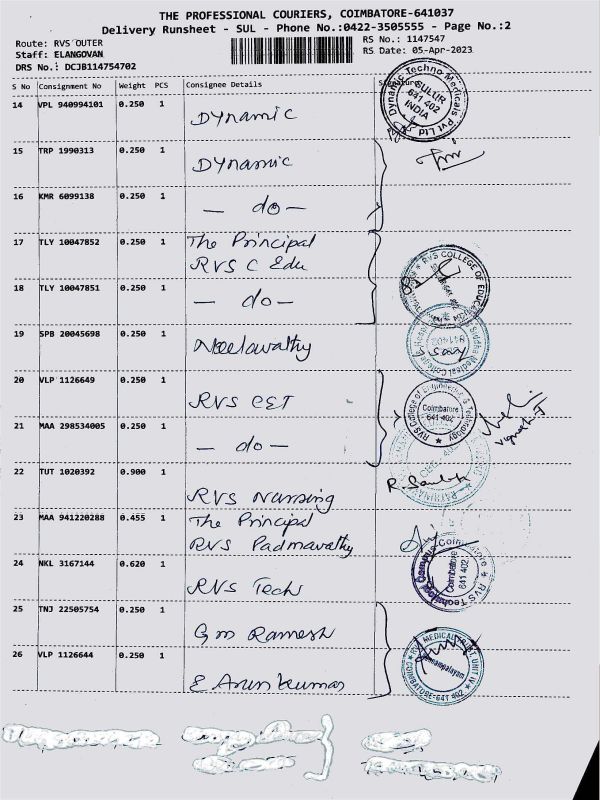 THE PROFESSIONAL COURIERS, COIMBATORE-641037
Delivery Runsheet - SUL - Phone No.:0422-3505555 - Page No.:2
Route: RVS OUTER
RS No.: 1147547
Staff: ELANGOVAN
RS Date: 05-Apr-2023
DRS No.: DCJB114754702
S No Consignment No Weight PCS Consignee Details Signature
14 VPL 940994101 0.250 1 Dynamic
Dynamic Techno Medicals Pvt Ltd
SULUR
641 402
INDIA
15 TRP 1990313 0.250 1 Dynamic
16 KMR 6099138 0.250 1 — do —
17 TLY 10047852 0.250 1 The Principal
RVS C Edu
RVS COLLEGE OF EDUCATION
18 TLY 10047851 0.250 1 — do —
19 SPB 20045698 0.250 1 Neelavathy
20 VLP 1126649 0.250 1 RVS CET
RVS College of Engineering & Technology
Coimbatore
641 402
21 MAA 298534005 0.250 1 — do —
Vignesh.J
22 TUT 1020392 0.900 1 RVS Nursing
23 MAA 941220288 0.455 1 The Principal
RVS Padmavathy
24 NKL 3167144 0.620 1 RVS Tech
RVS Technical Campus Coimbatore
Coimbatore
641 402
25 TNJ 22505754 0.250 1 G M Ramesh
26 VLP 1126644 0.250 1 E Arunkumar
RVS MEDICAL TRUST, UNIT IV
COIMBATORE-641 402